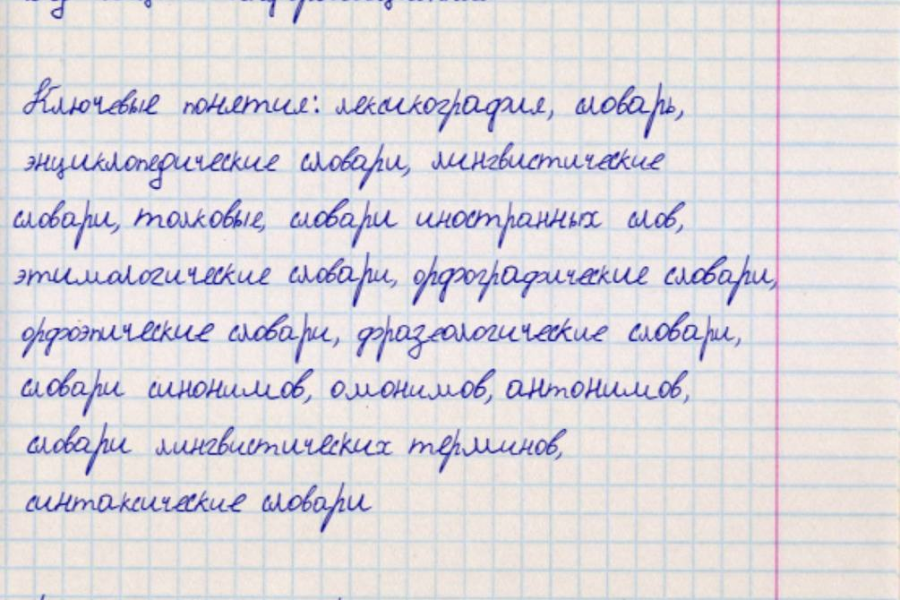 Ключевые понятия: лексикография, словарь,
энциклопедические словари, лингвистические
словари, толковые, словари иностранных слов,
этимологические словари, орфографические словари,
орфоэпические словари, фразеологические словари,
словари синонимов, омонимов, антонимов,
словари лингвистических терминов,
синтаксические словари